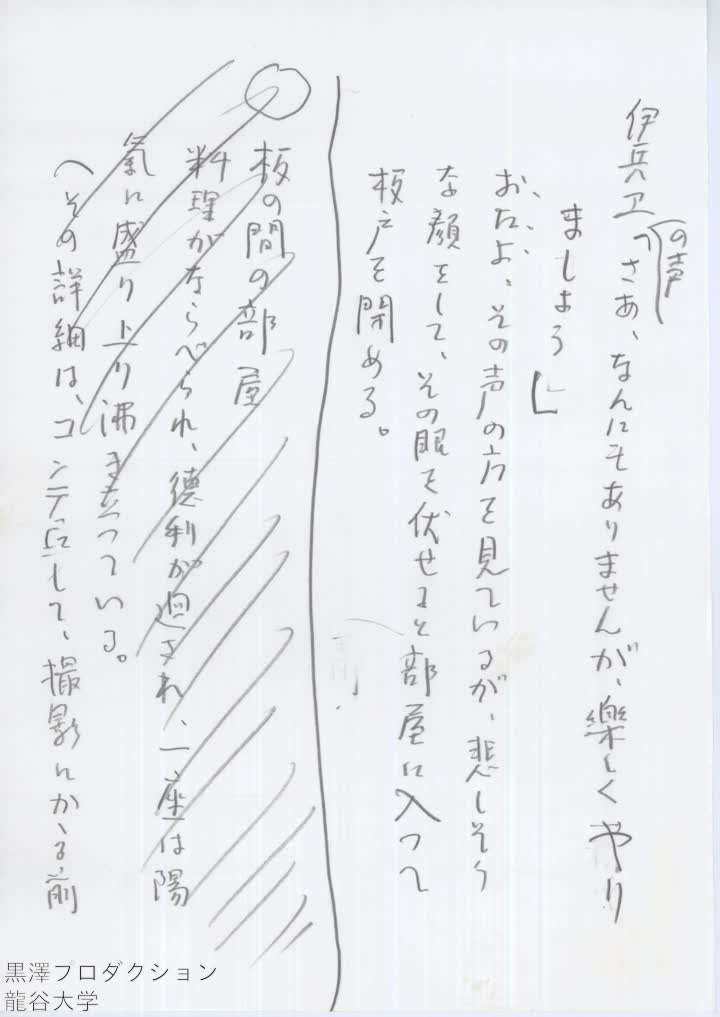 伊兵卫の声「さあ、なんにもありませんが、樂しくやり
ましょう」
おたよ、その声の方を見ているが、悲しそう
な顔をして、その眼を伏せると部屋に入って
板戸を閉める。
○
板の間の部屋
料理がならべられ、德利が廻され、一座は陽
氣に盛り上り沸き立っている。
（その詳細は、コンテにして、撮影にかゝる前
黒澤プロダクション
龍谷大学